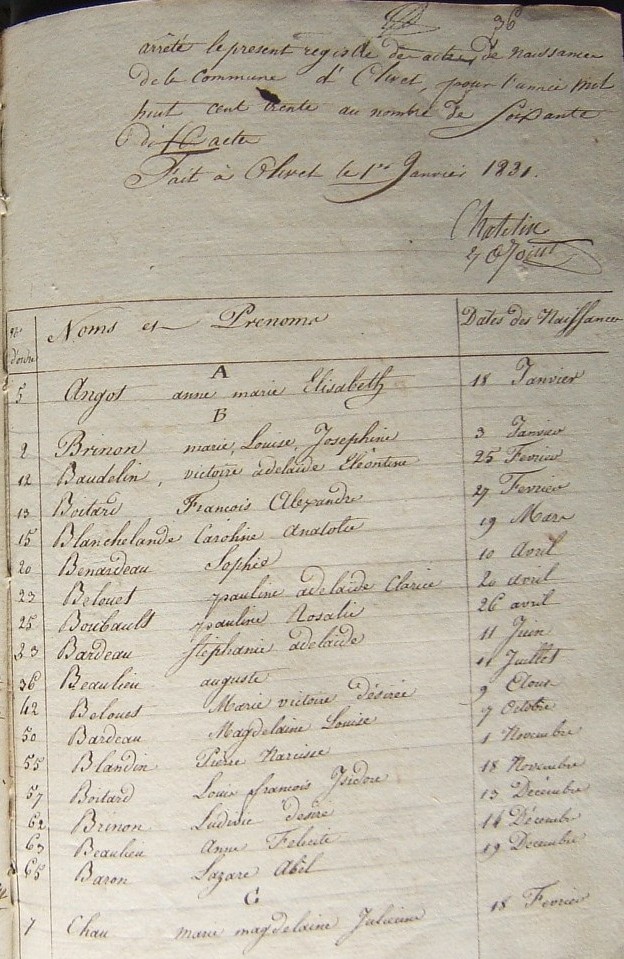 36
arrêté le present registre des actes de Naissances
de la Commune d'Olivet, pour l'année Mil
huit cent trente au nombre de Soixante
& dix actes
Fait à Olivet le 1er Janvier 1831.
Chatelin
Adjoint
No d'ordre Noms et Prenoms Dates des Naissances
A
5 Angot anne marie Elisabeth 18 Janvier
B
2 Brinon marie, Louise, Josephine 3 Janvier
12 Baudelin, victoire adelaide Eléontine 25 Fevrier
13 Boitard Francois Alexandre 27 Fevrier
15 Blanchelande Caroline Anatolie 19 Mars
20 Benardeau Sophie 10 Avril
23 Belouet pauline adelaïde Clarice 20 avril
25 Boubault pauline Rosalie 26 avril
23 Bardeau Stéphanie adelaïde 11 Juin
36 Beaulieu auguste 11 Juillet
42 Belouet Marie victoire désirée 9 Aout
50 Bardeau Magdelaine Louise 7 Octobre
55 Blandin Pierre Narcisse 1 Novembre
57 Boitard Louis francois Isidore 18 Novembre
62 Brinon Ludivic desiré 13 Décembre
63 Beaulieu Anne Felicité 14 Décembre
65 Baron Lazare Abel 19 Decembre
C
7 Chau marie magdelaine Julienne 18 Fevrier